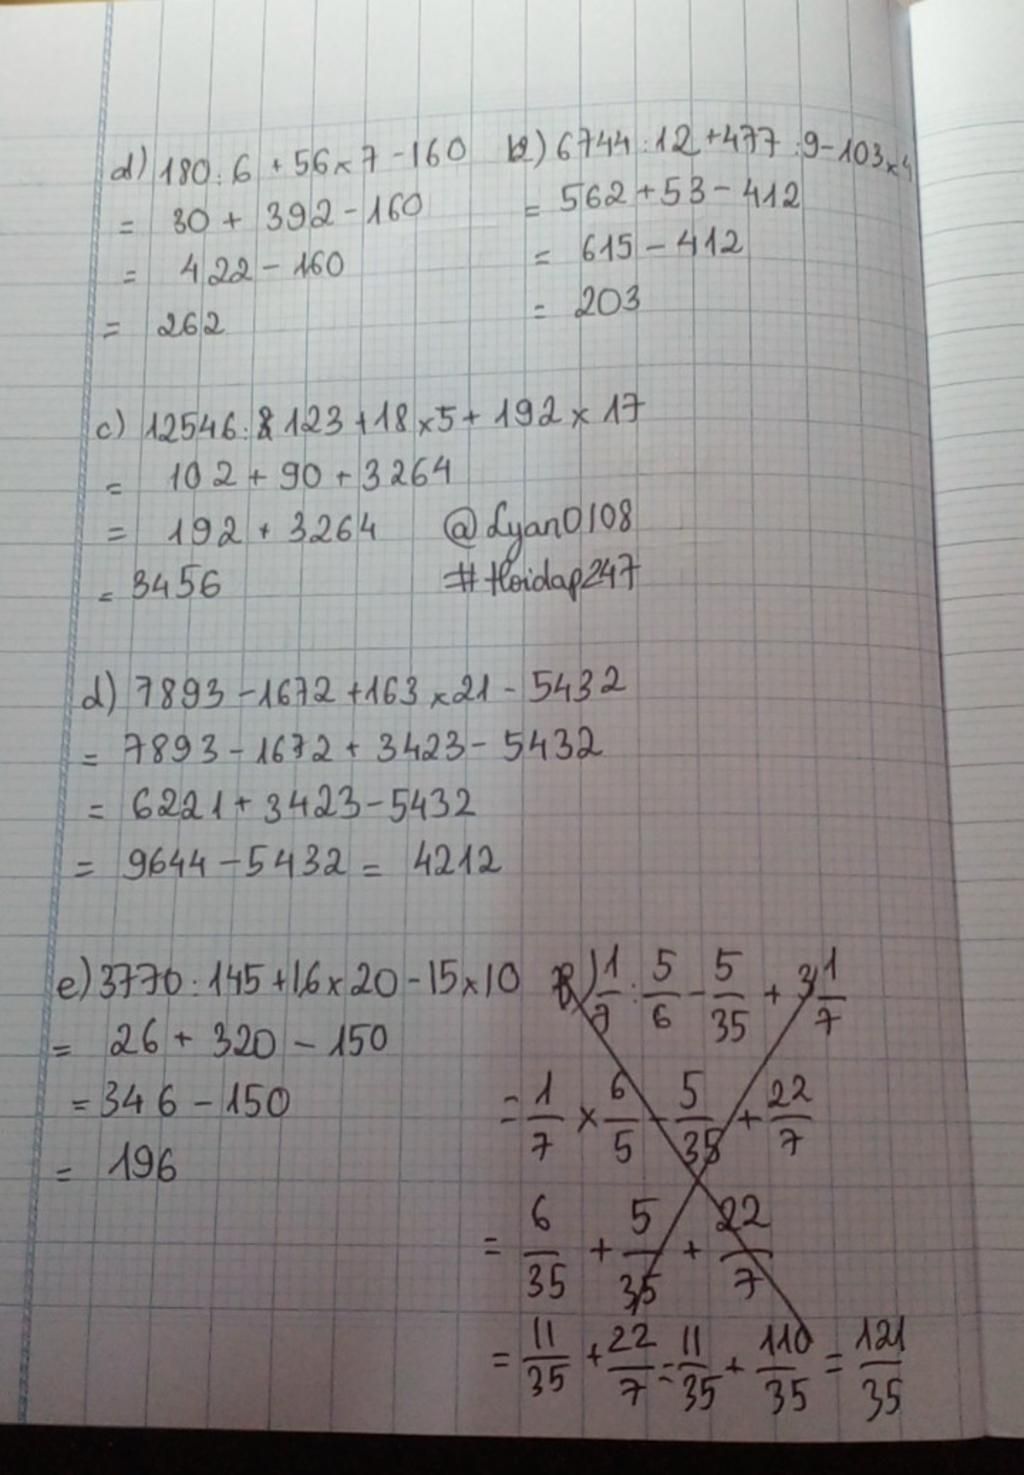 d) 180 : 6 + 56 x 7 - 160
= 30 + 392 - 160
= 422 - 160
= 262
b) 6744 : 12 + 477 : 9 - 103 x 4
= 562 + 53 - 412
= 615 - 412
= 203
c) 12546 : 123 + 18 x 5 + 192 x 17
= 102 + 90 + 3264
= 192 + 3264
= 3456
@Lyan0108
#Hoidap247
d) 7893 - 1672 + 163 x 21 - 5432
= 7893 - 1672 + 3423 - 5432
= 6221 + 3423 - 5432
= 9644 - 5432 = 4212
e) 3770 : 145 + 16 x 20 - 15 x 10
= 26 + 320 - 150
= 346 - 150
= 196
1/7 : 5/6 - 5/35 + 3 1/7
= 1/7 x 6/5 - 5/35 + 22/7
= 6/35 + 5/35 + 22/7
= 11/35 + 22/7 = 11/35 + 110/35 = 121/35